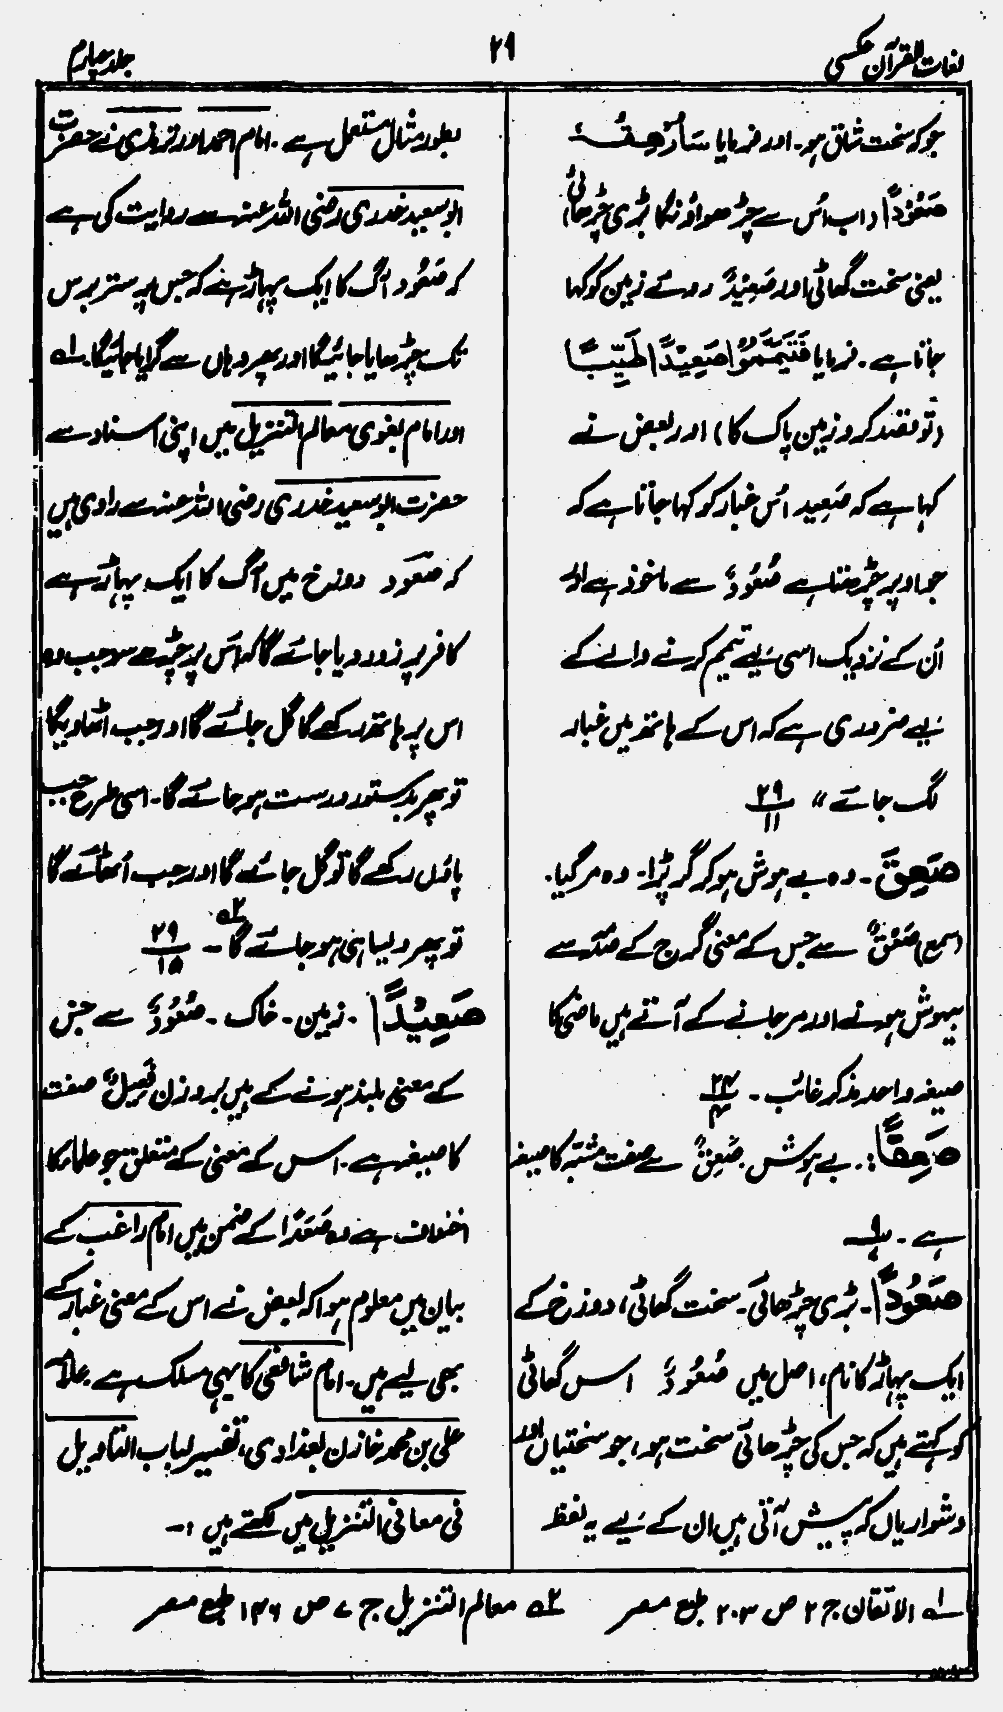 لغات القرآن عکسی
۲۹
جلد چہارم
جو کہ سخت شاق ہو۔ اور فرمایا سَاُرْهِقُهٗ
صَعُوْدًا (اب اُس سے چڑھواؤنگا بڑی چڑھائی)
یعنی سخت گھاٹی اور صَعِیْدٌ روئے زمین کو کہا
جاتا ہے۔ فرمایا فَتَیَمَّمُوْا صَعِیْدًا طَیِّبًا
(تو قصد کرو زمین پاک کا) اور بعض نے
کہا ہے کہ صَعِید اُس غبار کو کہا جاتا ہے کہ
جو اوپر چڑھتا ہے صُعُوْدٌ سے ماخوذ ہے اور
اُن کے نزدیک اسی لیے تیمم کرنے والے کے
لیے ضروری ہے کہ اس کے ہاتھ میں غبار
لگ جائے“ ۲۹/۱۱
صَعِقَ۔ وہ بے ہوش ہو کر گر پڑا۔ وہ مر گیا۔
(سمع) صَعْقٌ سے جس کے معنی گرج کے صدمے سے
بیہوش ہونے اور مر جانے کے آتے ہیں ماضی کا
صیغہ واحد مذکر غائب۔ ۲۴/۴
صَعِقًا:۔ بے ہوش۔ صَعِقٌ سے صفت مشبہ کا صیغہ
ہے۔ ۹/۷
صَعُوْدًا۔ بڑی چڑھائی۔ سخت گھاٹی، دوزخ کے
ایک پہاڑ کا نام، اصل میں صُعُوْدٌ اس گھاٹی
کو کہتے ہیں کہ جس کی چڑھائی سخت ہو، جو سختیاں اور
دشواریاں کہ پیش آتی ہیں ان کے لیے یہ لفظ
بطور مثال مستعمل ہے۔ امام احمد اور ترمذی نے حضرت
ابو سعید خدری رضی اللہ عنہ سے روایت کی ہے
کہ صَعُود آگ کا ایک پہاڑ ہے کہ جس پر ستر برس
تک چڑھایا جائیگا اور پھر وہاں سے گرایا جائیگا۔ لہ
اور امام بغوی معالم التنزیل میں اپنی اسناد سے
حضرت ابو سعید خدری رضی اللہ عنہ سے راوی ہیں
کہ صَعُود دوزخ میں آگ کا ایک پہاڑ ہے
کافر پر زور دیا جائے گا کہ اس پر چڑھے سو جب وہ
اس پر ہاتھ رکھے گا گل جائے گا اور جب اٹھا دیگا
تو پھر بدستور درست ہو جائے گا۔ اسی طرح جب
پاؤں رکھے گا تو گل جائے گا اور جب اُٹھائے گا
تو پھر ویسا ہی ہو جائے گا۔ ۲ہ ۲۹/۱۵
صَعِیْدًا۔ زمین۔ خاک۔ صُعُوْدٌ سے جس
کے معنی بلند ہونے کے ہیں بروزن فَعِیْلٌ صفت
کا صیغہ ہے۔ اس کے معنی کے متعلق جو علماء کا
اختلاف ہے وہ صَعَدًا کے ضمن میں امام راغب کے
بیان میں معلوم ہوا کہ بعض نے اس کے معنی غبار کے
بھی لیے ہیں۔ امام شافعی کا یہی مسلک ہے علامہ
علی بن محمد خازن بغدادی، تفسیر لباب التاویل
فی معانی التنزیل میں لکھتے ہیں:۔
لہ الاتقان ج ۲ ص ۲۰۳ طبع مصر
۲ہ معالم التنزیل ج ۷ ص ۱۴۶ طبع مصر